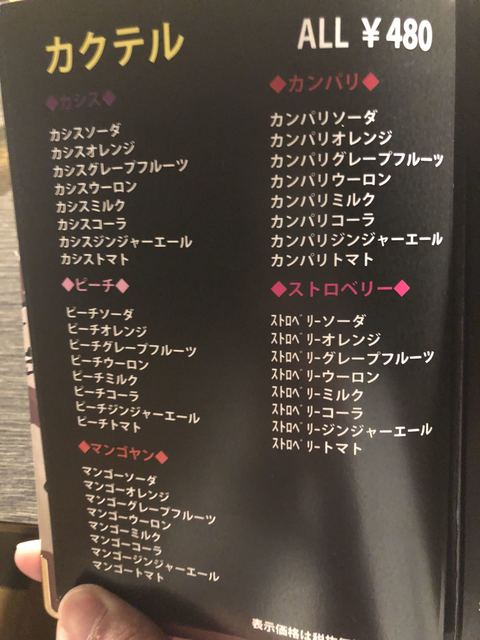 カクテル
ALL ¥480
◆カシス◆
カシスソーダ
カシスオレンジ
カシスグレープフルーツ
カシスウーロン
カシスミルク
カシスコーラ
カシスジンジャーエール
カシストマト
◆ピーチ◆
ピーチソーダ
ピーチオレンジ
ピーチグレープフルーツ
ピーチウーロン
ピーチミルク
ピーチコーラ
ピーチジンジャーエール
ピーチトマト
◆マンゴヤン◆
マンゴーソーダ
マンゴーオレンジ
マンゴーグレープフルーツ
マンゴーウーロン
マンゴーミルク
マンゴーコーラ
マンゴージンジャーエール
マンゴートマト
◆カンパリ◆
カンパリソーダ
カンパリオレンジ
カンパリグレープフルーツ
カンパリウーロン
カンパリミルク
カンパリコーラ
カンパリジンジャーエール
カンパリトマト
◆ストロベリー◆
ｽﾄﾛﾍﾞﾘｰソーダ
ｽﾄﾛﾍﾞﾘｰオレンジ
ｽﾄﾛﾍﾞﾘｰグレープフルーツ
ｽﾄﾛﾍﾞﾘｰウーロン
ｽﾄﾛﾍﾞﾘｰミルク
ｽﾄﾛﾍﾞﾘｰコーラ
ｽﾄﾛﾍﾞﾘｰジンジャーエール
ｽﾄﾛﾍﾞﾘｰトマト
表示価格は税抜